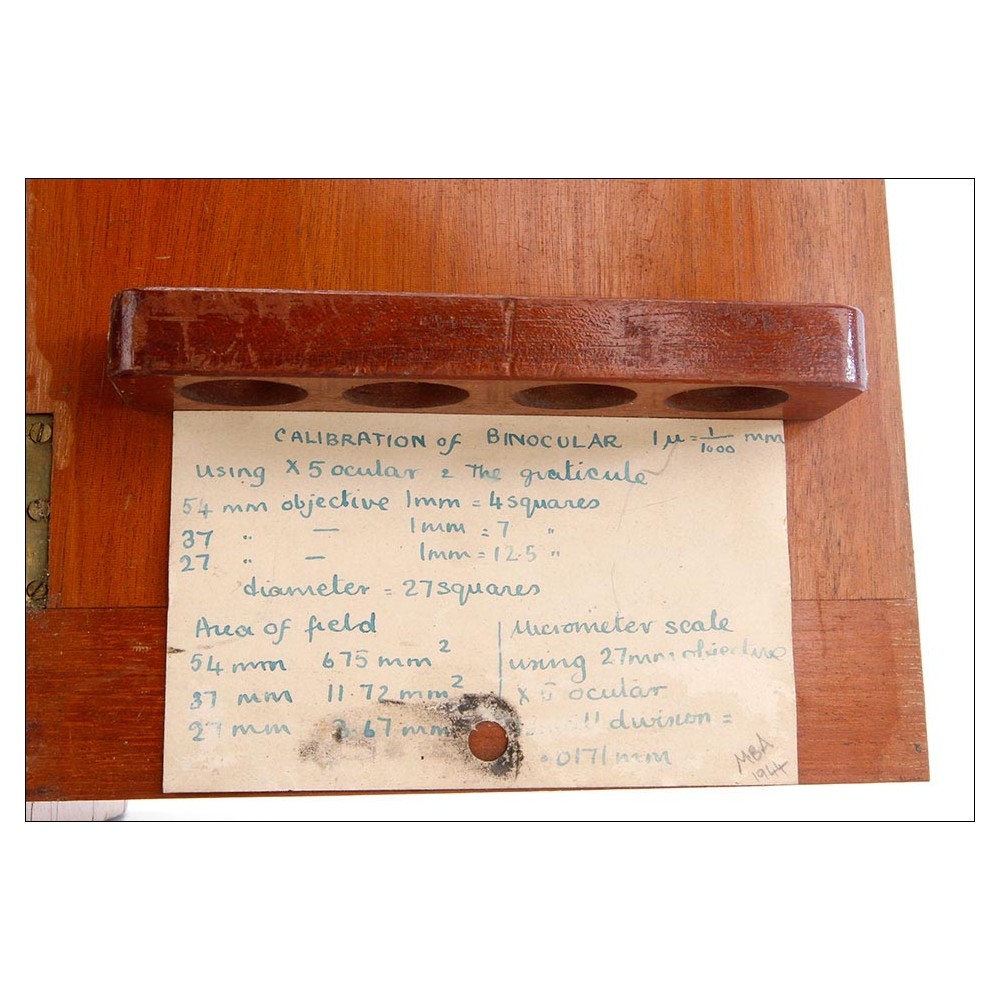 CALIBRATION of BINOCULAR 1 μ = 1/1000 mm
using X 5 ocular & The graticule
54 mm objective 1mm = 4 squares
37 " — 1mm = 7 "
27 " — 1mm = 12.5 "
diameter = 27 squares
Area of field
54 mm 675 mm²
37 mm 11.72 mm²
27 mm .67 mm
Micrometer scale
using 27mm objective
X 5 ocular
division =
.0171 mm
MBA
1944